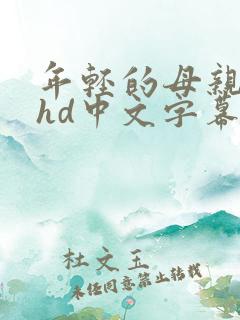 年轻的母亲
hd中文字幕
杜文玉
未经同意禁止转载